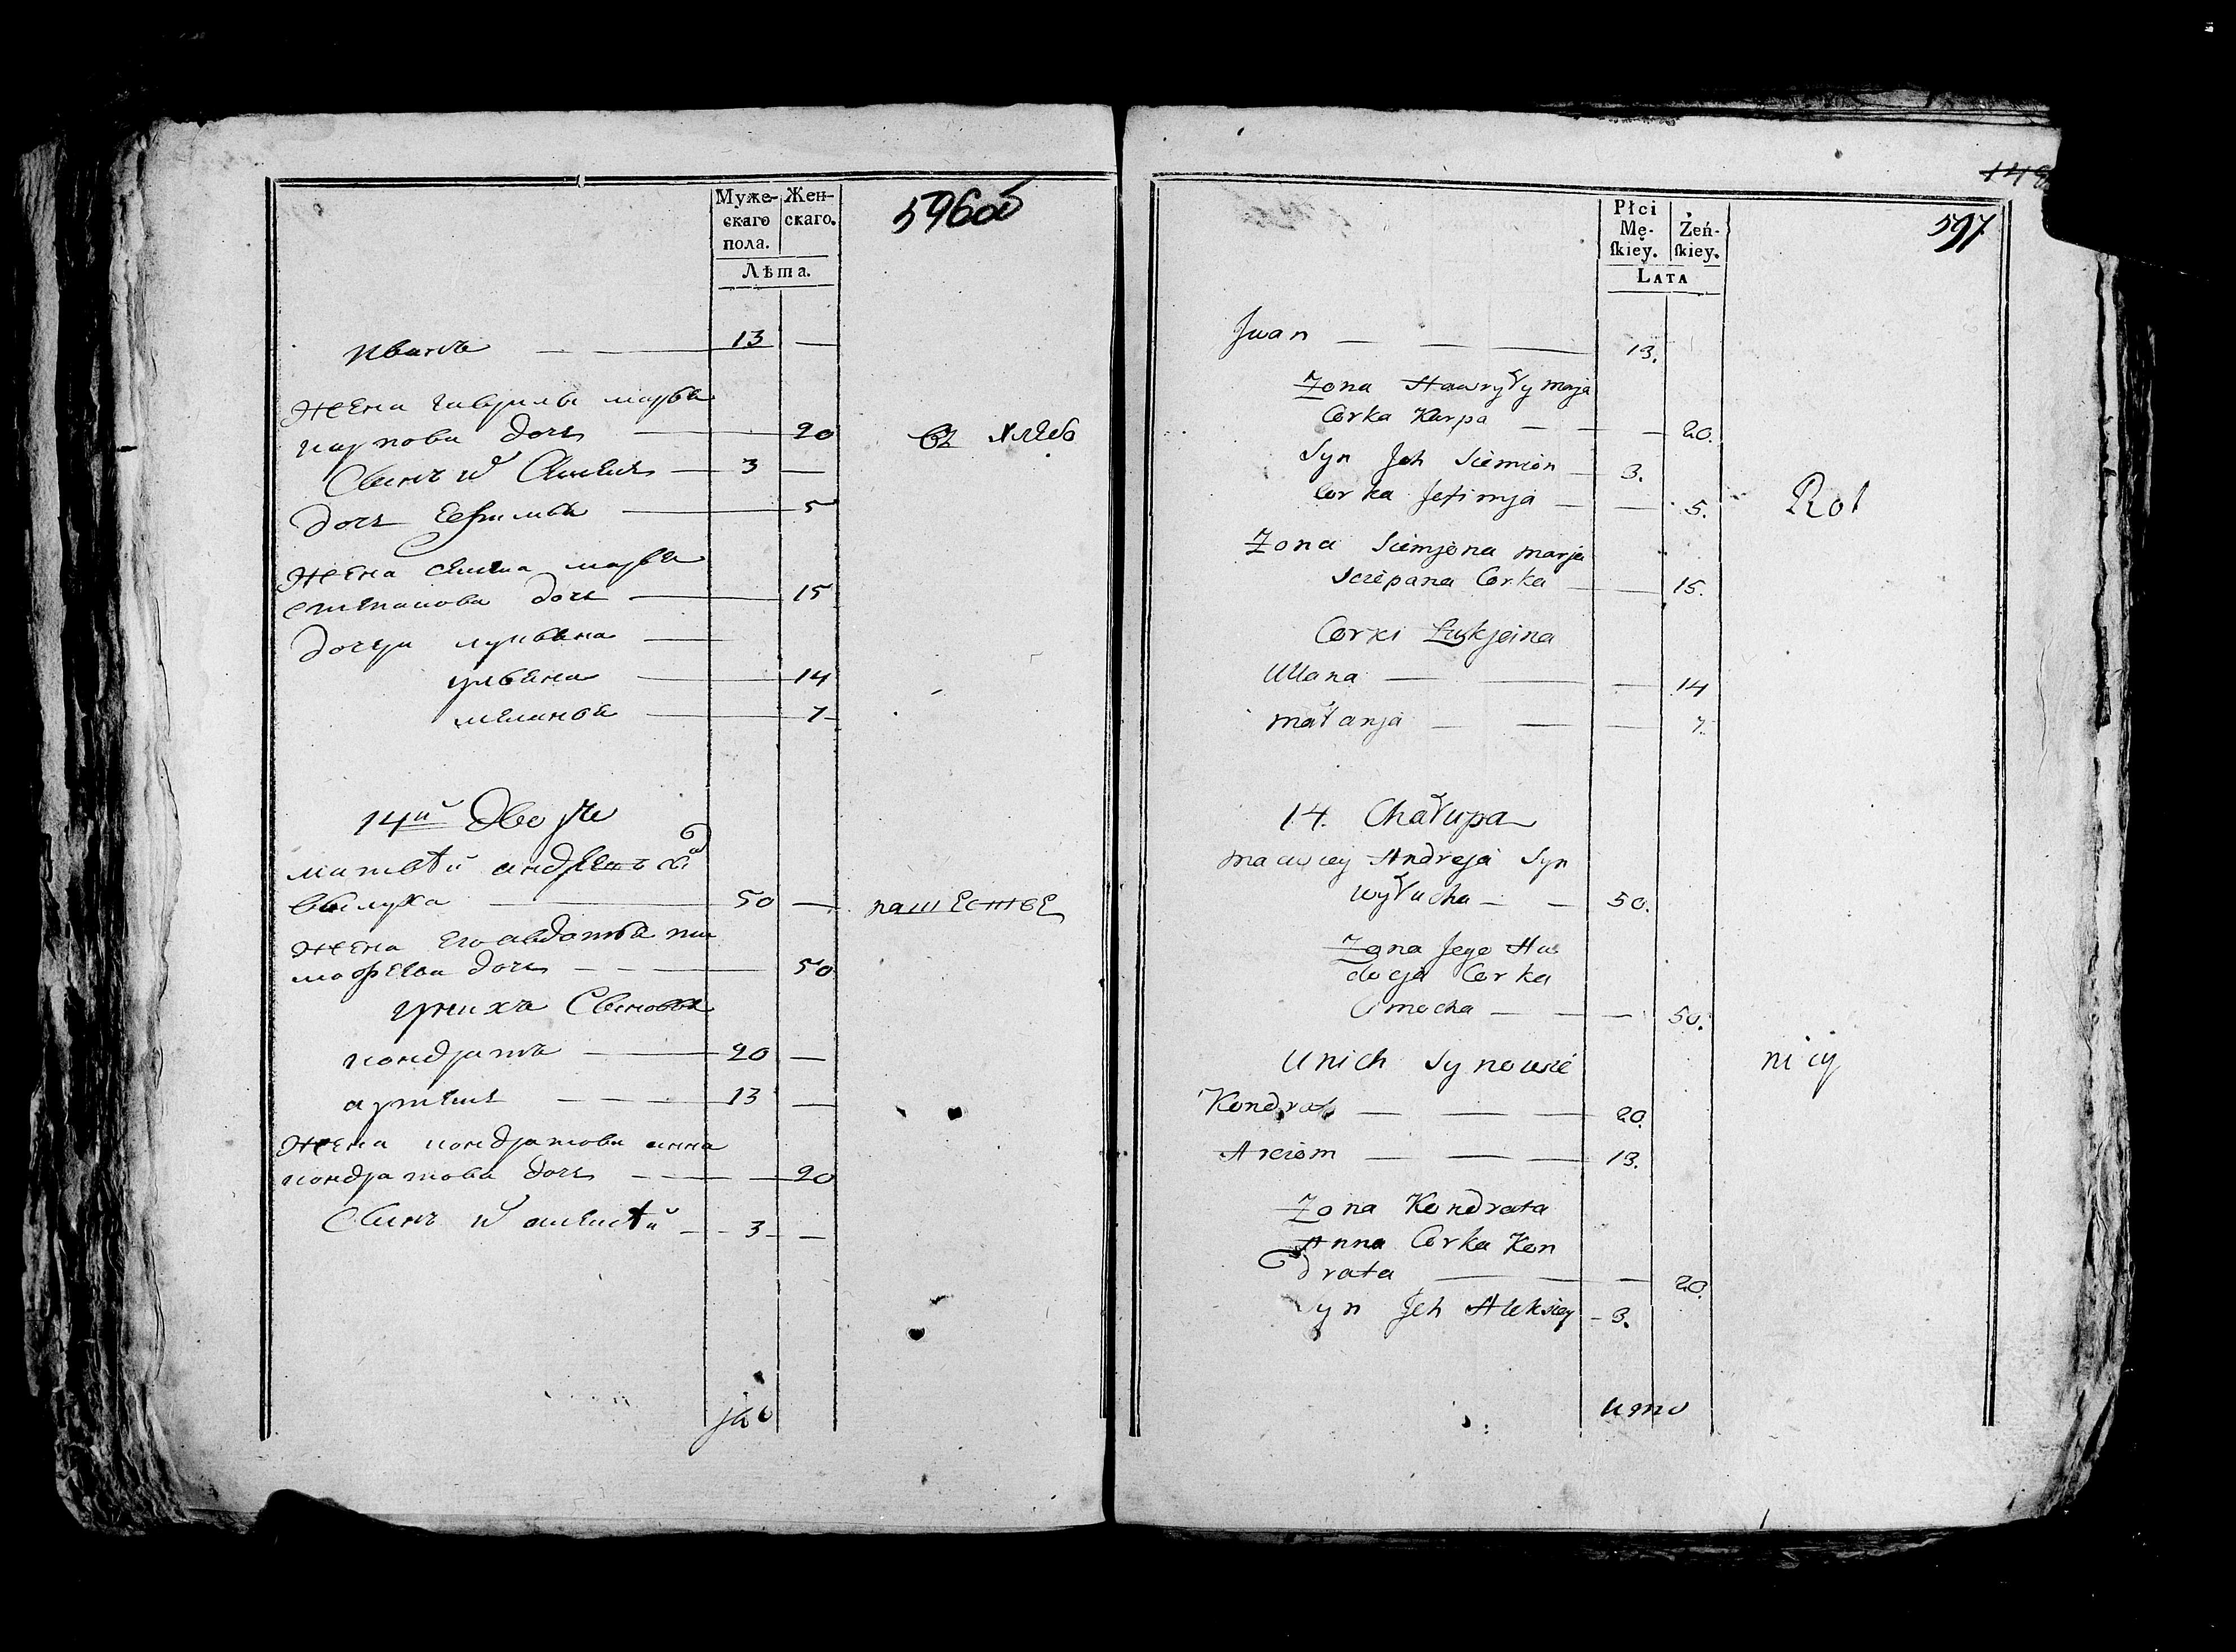 Муже-
скаго
пола.
Жен-
скаго.
Лѣта.
596об
Иванъ — — 13 —
Жена гаврилы марья
карпова дочь — 20
въ хлеб
Сынъ их Семенъ — 3 —
дочь Еефимья — 5
Жена семена марья
степанова дочь — 15
дочери лукьяна —
ульяна — 14
меланья — 7
14й Дворъ
матвѣй андреевъ сы
Вылуха — 50 —
пашестве
Жена его авдотья ти
мофеева дочь — — 50
у нихъ Сыновья
кондратъ — 20 —
артемъ — — 13 —
Жена кондратова анна
кондратова дочь — — 20
Сынъ их алексѣй — 3 —
Płci
Mę-
skiey.
Żeń-
skiey.
LATA
597
Jwan — — 13.
Zona Hawryły marja
Corka Karpa — — 20.
Syn Jch Siemion — 3.
Corka Jefimja — — 5.
Rol
Zona Siemjona marja
Sciepana Corka — — 15.
Corki Łukjeina
Ullana — — — 14
małanja — — — 7.
14. Chałupa
maciey Andreja Syn
wyłucha — — 50.
Zona Jego Au
docja Corka
Cimocha — — — 50.
Unich Synowie
nicy
Kondrat — — — 20.
Arciom — — — 13.
Zona Kondrata
Anna Corka Kon
drata — — — 20.
Syn Jch Aleksiey — 3.